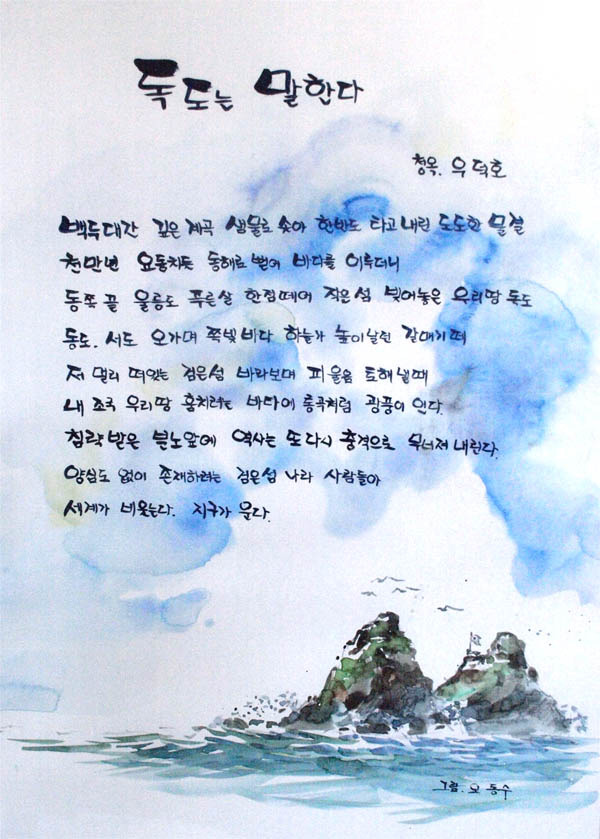 독도는 말한다
청옥. 우덕호
백두대간 깊은 계곡 샘물로 솟아 한반도 타고내린 도도한 물결
천만년 요동치든 동해로 뻗어 바다를 이루더니
동쪽 끝 울릉도 푸르살 한점떼어 작은섬 빚어놓은 우리땅 독도
동도. 서도 오가며 쪽빛바다 하늘가 높이날던 갈매기떼
저 멀리 떠있는 검은섬 바라보며 피울음 토해낼때
내 조국 우리땅 훔치려는 바다에 통곡처럼 광풍이 인다.
침략 받은 분노앞에 역사는 또다시 충격으로 무너져내린다.
양심도 없이 존재하려는 검은섬 나라 사람들아
세계가 비웃는다. 지구가 운다.
그림. 오 동수